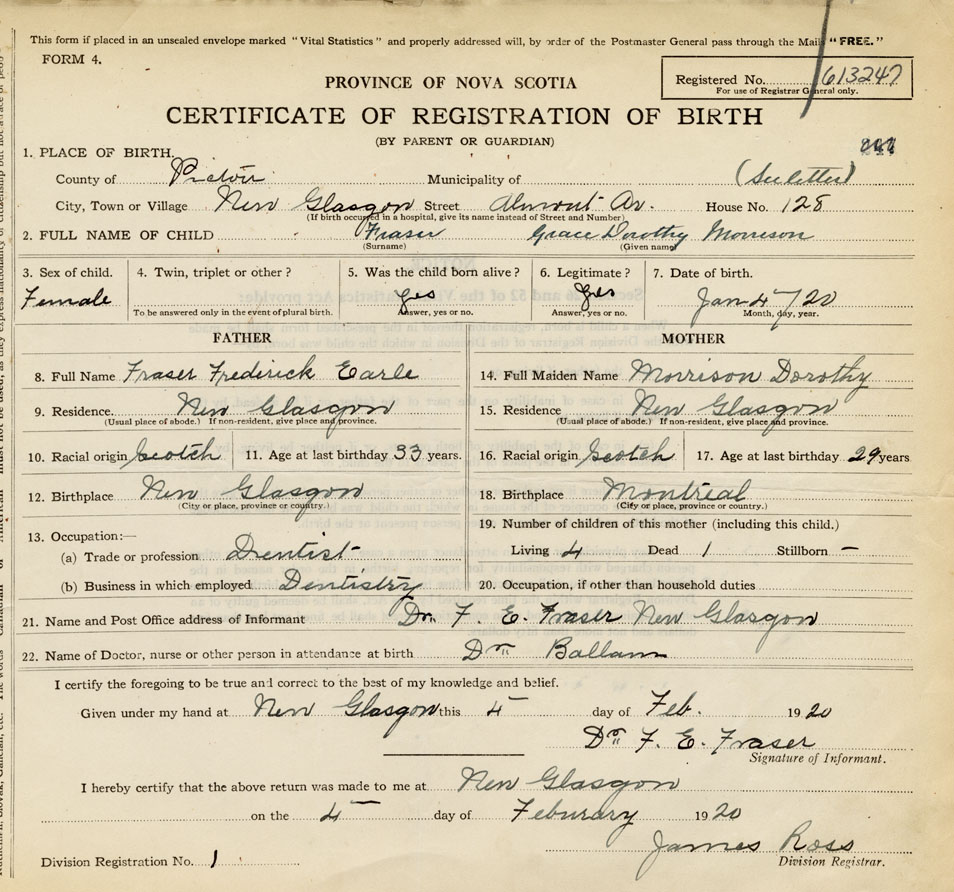 This form if placed in an unsealed envelope marked "Vital Statistics" and properly addressed will, by order of the Postmaster General pass through the Mails "FREE."
FORM 4.
Registered No. 613247
For use of Registrar General only.
PROVINCE OF NOVA SCOTIA
CERTIFICATE OF REGISTRATION OF BIRTH
(BY PARENT OR GUARDIAN)
1. PLACE OF BIRTH.
County of Pictou Municipality of (See letter)
City, Town or Village New Glasgow Street Almont Av. House No. 128
(If birth occured in a hospital, give its name instead of Street and Number)
2. FULL NAME OF CHILD Fraser Grace Dorothy Morrison
(Surname) (Given name)
3. Sex of child. 4. Twin, triplet or other? 5. Was the child born alive? 6. Legitimate? 7. Date of birth.
Female Yes Yes Jan 4/20
To be answered only in the event of plural birth. Answer, yes or no. Answer, yes or no. Month, day, year.
FATHER MOTHER
8. Full Name Fraser Frederick Earle 14. Full Maiden Name Morrison Dorothy
9. Residence. New Glasgow 15. Residence New Glasgow
(Usual place of abode.) If non-resident, give place and province. (Usual place of abode.) If non-resident, give place and province.
10. Racial origin Scotch 11. Age at last birthday 33 years. 16. Racial origin Scotch 17. Age at last birthday 29 years
12. Birthplace New Glasgow 18. Birthplace Montreal
(City or place, province or country.) (City or place, province or country.)
13. Occupation:— 19. Number of children of this mother (including this child.)
(a) Trade or profession Dentist Living 4 Dead 1 Stillborn –
(b) Business in which employed Dentistry 20. Occupation, if other than household duties
21. Name and Post Office address of Informant Dr. F. E. Fraser New Glasgow
22. Name of Doctor, nurse or other person in attendance at birth Dr Ballam
I certify the foregoing to be true and correct to the best of my knowledge and belief.
Given under my hand at New Glasgow this 4 day of Feb. 1920
Dr F. E. Fraser
Signature of Informant.
I hereby certify that the above return was made to me at New Glasgow
on the 4 day of Feburary 1920
James Ross
Division Registration No. 1 Division Registrar.